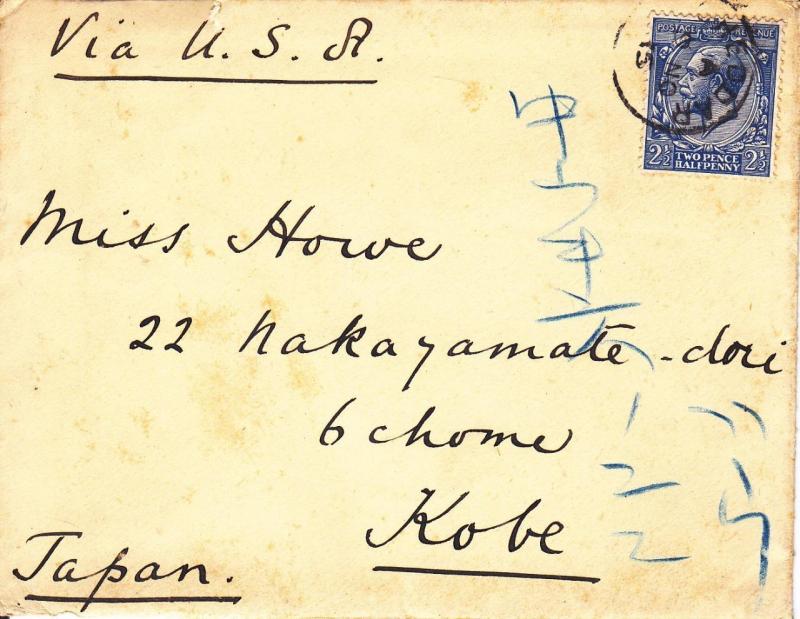 Via U.S.A.
POSTAGE REVENUE
2½ TWO PENCE HALFPENNY 2½
Miss Howe
22 Nakayamate-dori
6 chome
Kobe
Japan.
中山手六
二二